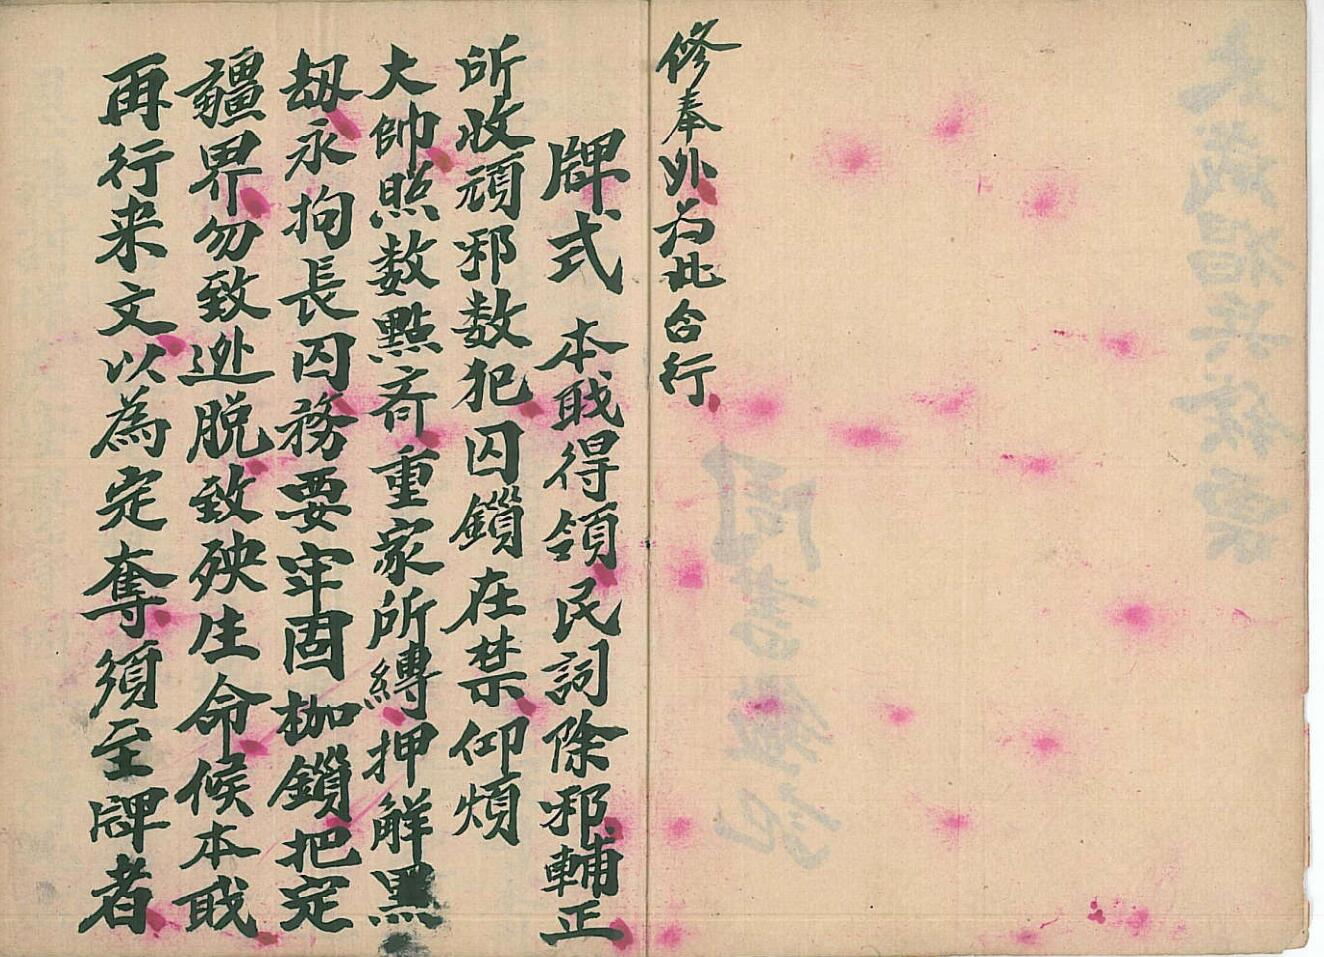 修奉外为此合行
牌式 本戝得領民詞除邪輔正
所收頑邪数犯囚鎖在禁仰煩
大帥照数點斉重家所縛押解黑
刼永拘長囚務要牢固枷鎖把定
疆界勿致迯脱致殃生命候本戝
再行来文以為定奪須至牌者